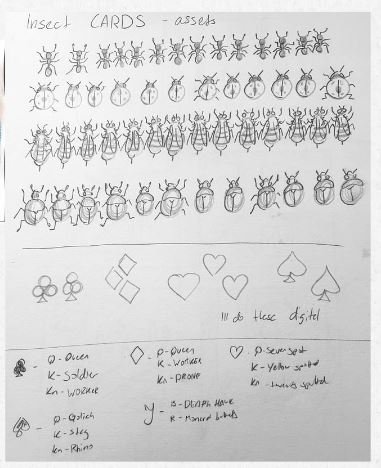 Insect CARDS - assets
I'll do these digital
Q - Queen
K - Soldier
Kn - WORKER
Q - Queen
K - WORKER
Kn - DRONE
Q - Seven spot
K - Yellow spotted
Kn - spotted
Q - Goliath
K - Stag
Kn - Rhino
DEATH HAWK